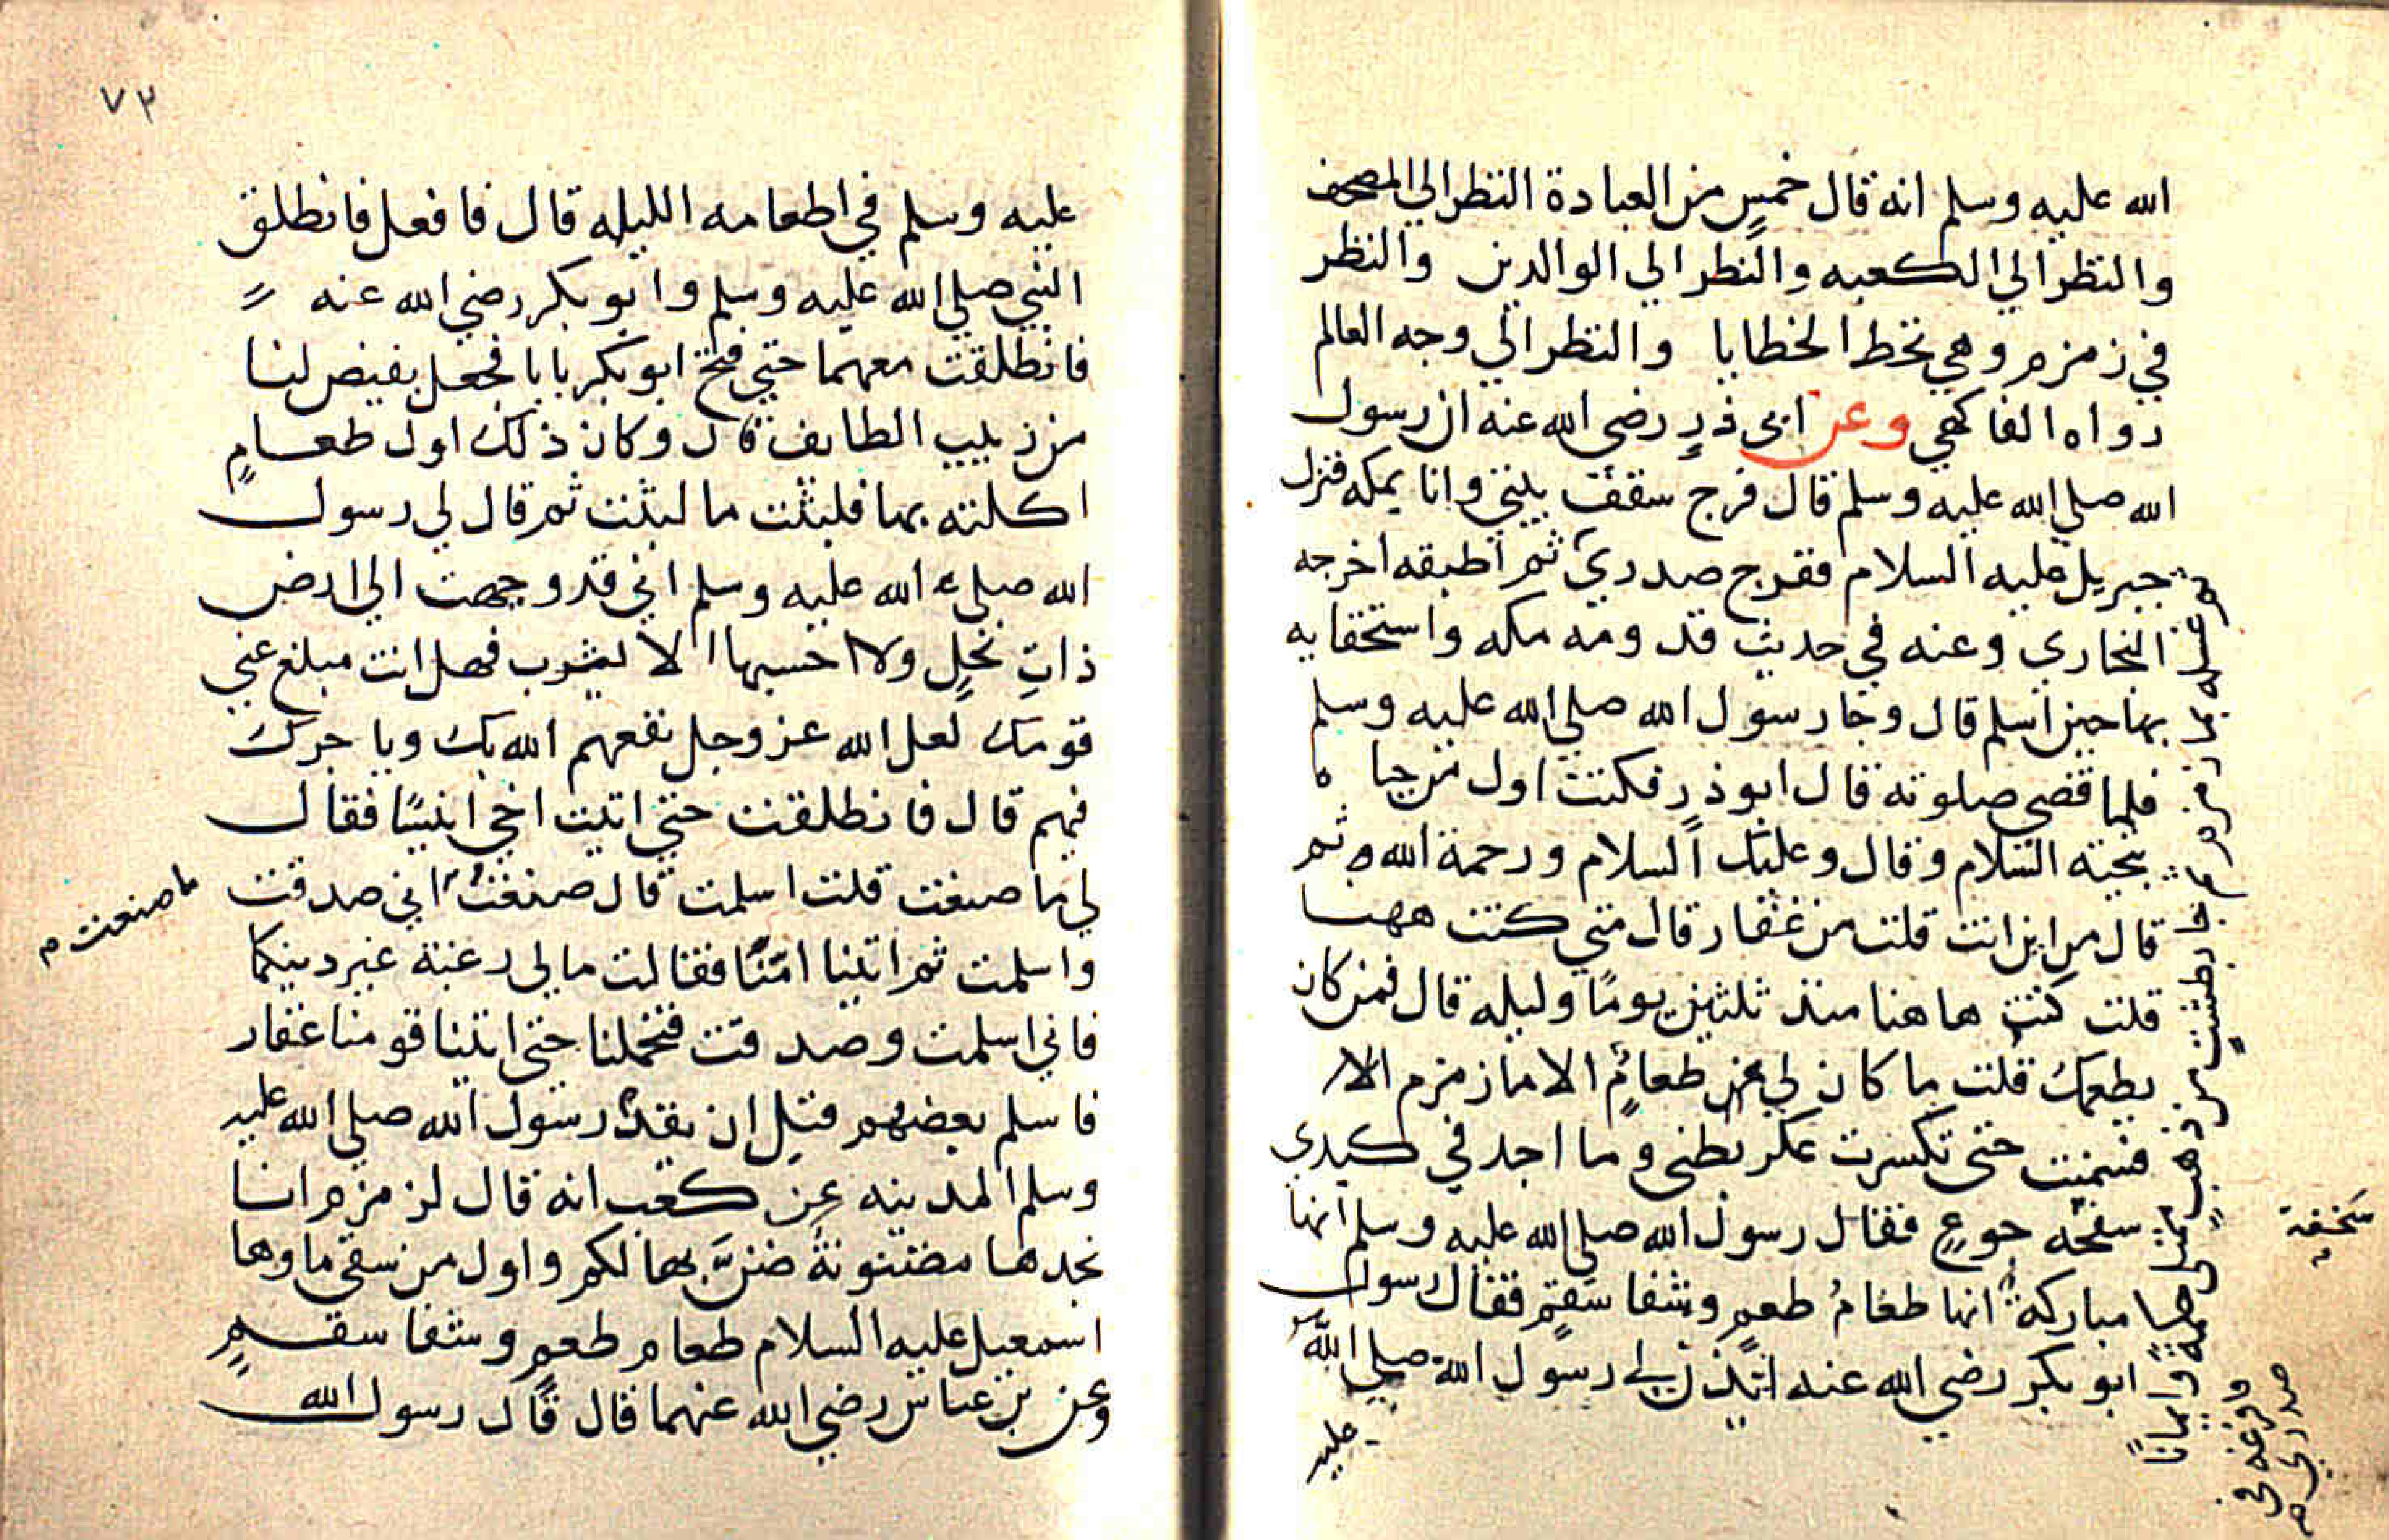 الله عليه وسلم انه قال خمس من العبادة النظر الي المصحف
والنظر الي الكعبه والنظر الي الوالدين والنظر
في زمزم وهي تحط الخطايا والنظر الي وجه العالم
رواه الفاكهي وعن ابي ذرٍ رضي الله عنه ان رسول
الله صلي الله عليه وسلم قال فرج سقف بيتي وانا بمكه فنزل
جبريل عليه السلام ففرج صدري ثم اطبقه اخرجه
البخاري وعنه في حديث قدومه مكه واستخفايه
بها حين اسلم قال وجا رسول الله صلي الله عليه وسلم
فلما قضي صلوته قال ابو ذر فكنت اول من حيا ه
بتحية السلام وقال وعليك السلام ورحمة الله ثم
قال من اين انت قلت من غفار قال متي كنت ههنا
قلت كنت هاهنا منذ ثلثين يومًا وليله قال فمن كان
يطعمك قلت ما كان لي من طعامٍ الا ما زمزم الا
فسمنت حتى تكسرت عكر بطني وما اجد في كبدي
سفحه جوعٍ فقال رسول الله صلي الله عليه وسلم انها
مباركة انها طعامُ طعمٍ وشفا سقمٍ فقال رسول
ابو بكر رضي الله عنه ائذن لي رسول الله صلي الله
عليه
ثم غسله بما زمزم ثم جا بطشتٍ من ذهبٍ ممتلي حكمةً وايمانًا
وافرغه في
صدري م
سخفة
٧٢
عليه وسلم في اطعامه الليله قال فافعل فانطلق
النبي صلي الله عليه وسلم وابو بكر رضي الله عنه
فانطلقت معهما حتي فتح ابو بكر بابا فجعل يفيض لنا
من زبيب الطايف قال وكان ذلك اول طعامٍ
اكلته بها فلبثت ما لبثت ثم قال لي رسول
الله صلي الله عليه وسلم اني قد وجهت الي ارض
ذاتِ نخلٍ ولا احسبها الا يثرب فهل انت مبلغ عني
قومك لعل الله عز وجل نفعهم الله بك وياجرك
فيهم قال فانطلقت حتي اتيت اخي انيسًا فقال
لي ما صنعت قلت اسلمت قال صنعت اني صدقت
ما صنعت م
واسلمت ثم اتينا امّنا فقالت ما لي رغبة عن دينكما
فاني اسلمت وصدقت فتحملنا حتي اتينا قومنا غفار
فاسلم بعضهم قبل ان يقدم رسول الله صلي الله عليه
وسلم المدينه عن كعب انه قال لزمزم انا
نجدها مضنونة ضن بها لكم واول من سقي ماوها
اسمعيل عليه السلام طعام طعمٍ وشفا سقمٍ
وعن بن عباس رضي الله عنهما قال قال رسول الله